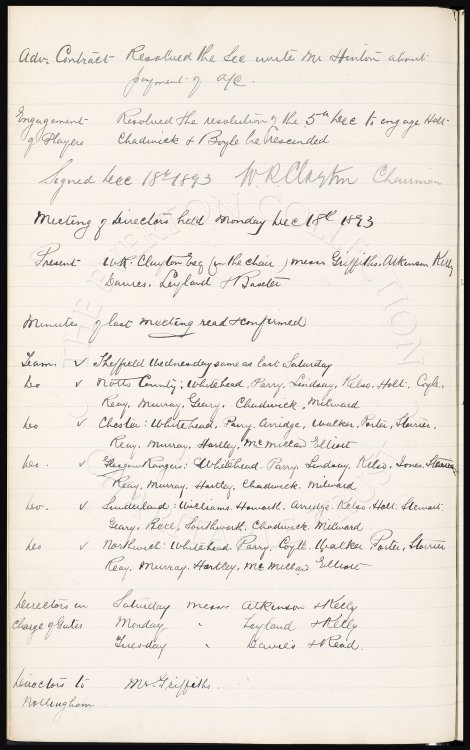 Adv. Contract Resolved the Sec write Mr Hinton about
payment of a/c.
Engagement Resolved the resolution of the 5th Dec to engage Holt
of Players Chadwick & Boyle be rescended
Signed Dec 18th 1893 W. R. Clayton Chairman
Meeting of Directors held Monday Dec 18th 1893
Present W.R. Clayton Esq (in the chair) Messrs Griffiths. Atkinson. Kelly
Davies. Leyland & Baxter
Minutes of last meeting read & confirmed
Team. v Sheffield Wednesday same as last Saturday
Do v Notts County: Whitehead. Parry. Lindsay. Kelso. Holt. Coyle.
Reay. Murray. Geary. Chadwick. Milward
Do v Chester: Whitehead. Parry. Arridge. Walker. Porter. Storrier.
Reay. Murray. Hartley. McMillan Elliott
Do. v Glasgow Rangers: Whitehead. Parry. Lindsay. Kelso. Jones. Stewart
Reay. Murray. Hartley. Chadwick. Milward
Do. v Sunderland: Williams. Howarth. Arridge. Kelso. Holt. Stewart.
Geary. Bell. Southworth. Chadwick. Milward
Do v Northwich: Whitehead. Parry. Coyle. Walker Porter. Storrier
Reay. Murray. Hartley. McMillan Elliott
Directors in Saturday Messrs Atkinson & Kelly
Charge of Gates Monday " Leyland & Kelly
Tuesday " Davies & Read.
Directors to Mr. Griffiths.
Nottingham
THE EVERTON COLLECTION